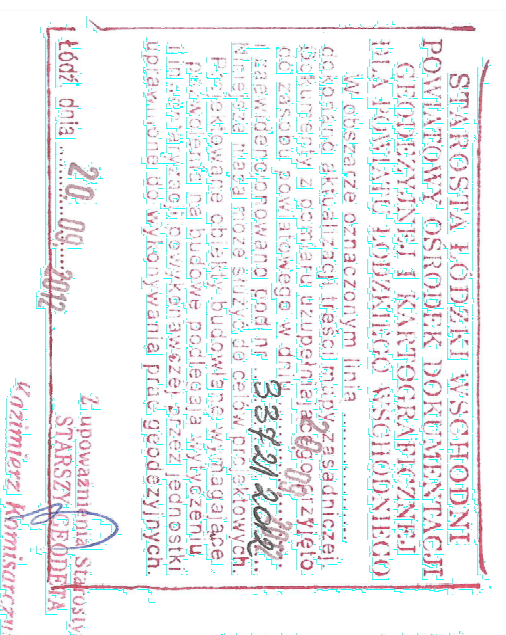 STAROSTA ŁÓDZKI WSCHODNI
POWIATOWY OŚRODEK DOKUMENTACJI
GEODEZYJNEJ I KARTOGRAFICZNEJ
DLA POWIATU ŁÓDZKIEGO WSCHODNIEGO
W obszarze oznaczonym linią ............
dokonano aktualizacji treści mapy zasadniczej.
Dokumenty z pomiaru uzupełniającego przyjęto
do zasobu powiatowego w dniu 20. 09. 2012
i zaewidencjonowano pod nr 3372/2012
Niniejsza mapa może służyć do celów projektowych.
Projektowane obiekty budowlane wymagające
pozwolenia na budowę podlegają wytyczeniu
i inwentaryzacji powykonawczej przez jednostki
uprawnione do wykonywania prac geodezyjnych.
Łódź dnia 20. 09. 2012
Z upoważnienia Starosty
STARSZY GEODETA
Kazimierz